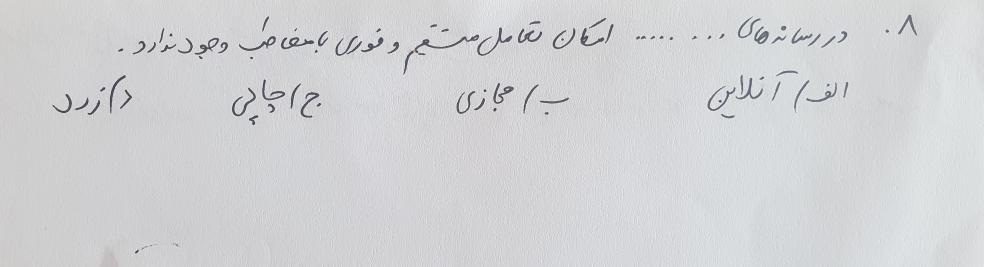 ۸. در رسانه‌های ........ امکان تعامل مستقیم و فوری با مخاطب وجود ندارد.
الف/ آنلاین ب/ مجازی ج/ چاپی د/ زرد